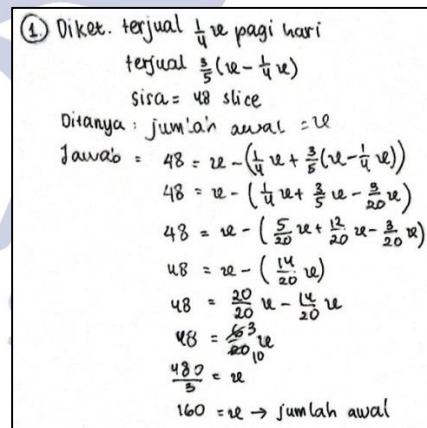 ① Diket. terjual 1/4 x pagi hari
terjual 3/5 (x - 1/4 x)
sisa = 48 slice
Ditanya : jumlah awal = x
Jawab = 48 = x - (1/4 x + 3/5 (x - 1/4 x))
48 = x - (1/4 x + 3/5 x - 3/20 x)
48 = x - (5/20 x + 12/20 x - 3/20 x)
48 = x - (14/20 x)
48 = 20/20 x - 14/20 x
48 = 6̶ 3/2̶0̶ 10 x
480/3 = x
160 = x → jumlah awal